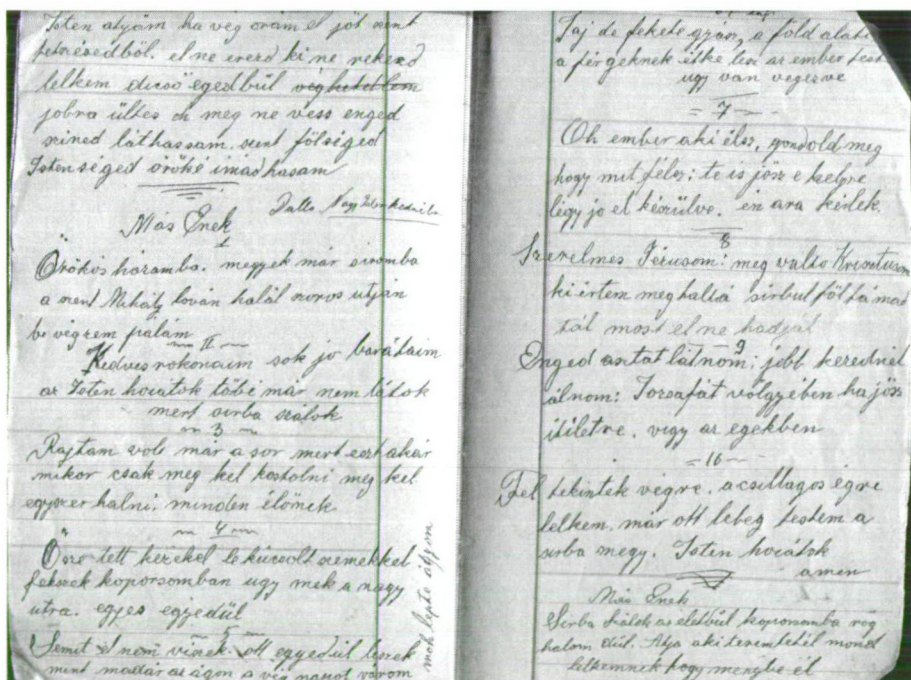 Isten atyám ha vég orám el jöt szent
tetszésedből. el ne ereszd ki ne rekeszd
lelkem dicső egedbül véghetetlem
jobra ültes oh meg ne vess enged
szined láthassam. szent fölséged
Istenséged öröké imádhasam
Más Ének
1
Örökös házamba. megyek már siromba
a szent Mihály lován halál szoros utján
be végzem pálám
II
Kedves rokonaim sok jo barátaim
az Isten hozátok töbé már nem látok
mert sirba szálok
3
Rajtam volt már a sor mert ezt akár
mikor csak meg kel kostolni meg kel
egyszer halni. minden élönek
4
Ösze tett kezekel le húzott szemekkel
fekszek koporsomban ugy mek a nagy
utra. egyes egyedül
5
Semit el nem viszek. ott egyedül leszek
mint madár az ágon a vég napot várom
moh lepte ágyon
Jaj de fekete gyász, a föld alatt
a férgeknek étke lesz az ember test
ugy van végezve
7
Oh ember aki élsz, gondold meg
hogy mit félsz: te is jösz e helyre
légy jo el készülve. én ara kérlek.
8
Szerelmes Jézusom: meg valto Krisztusom
ki értem meghaltá sirbul föltámad
tál most el ne hadjál
9
Enged asztat látnom: jobb kezednél
álnom: Jozsafát völgyében ha jösz
itiletre. vigy az egekben
10
Fel tekintek vegre. a csillagos égre
lelkem. már ott lebeg testem a
sirba megy. Isten hozátok
amen
Más Ének
Sirba szálok az életbül koporsomba
halom élül. Atya aki teremtetél mond
lelkemnek hogy menybe él